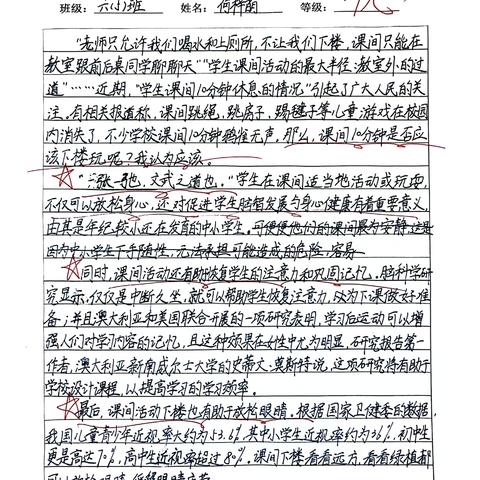 班级：六(八)班 姓名：何梓萌 等级：优
"老师只允许我们喝水和上厕所，不让我们下楼，课间只能在
教室跟前后桌同学聊聊天""学生课间活动的最大半径：教室外的过
道"……近期，"学生课间10分钟休息的情况"引起了广大人民的关
注。有相关报道称，课间跳绳，跳房子，踢毽子等儿童游戏在校园
内消失了，不少学校课间10分钟鸦雀无声，那么，课间10分钟是否应
该下楼玩呢？我认为应该。
"一张一弛，文武之道也。"学生在课间适当地活动或玩耍，
不仅可以放松身心，还对促进学生脑智发展与身心健康有着重要意义，
由其是年纪较小还在发育的中小学生。可便便他们的课间最为安静，这是
因为中小学生下手随性，无法承担可能造成的危险，容易
同时，课间活动还有助恢复学生的注意力和巩固记忆。脑科学研
究显示，仅仅是中断久坐，就可以帮助学生恢复注意力，以为下课做好准
备；并且澳大利亚和美国联合开展的一项研究表明，学习后运动可以增
强人们对学习内容的记忆，且这种效果在女性中尤为明显，研究报告第一
作者，澳大利亚新南威尔士大学的史蒂文·莫斯特说，这项研究将有助于
学校设计课程，以提高学习的学习效率。
最后，课间活动下楼也有助于放松眼睛。根据国家卫健委的数据，
我国儿童青少年近视率大约为53.6%，其中小学生近视率约为36%，初中生
更是高达70%，高中生近视率超过80%。课间下楼看看远方，看看绿植都